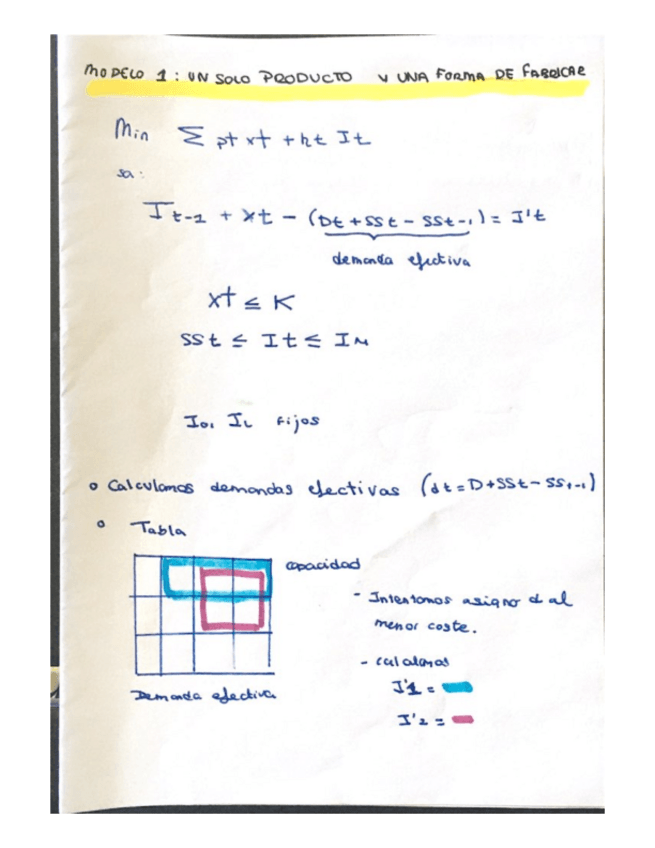 MODELO 1: UN SOLO PRODUCTO Y UNA FORMA DE FABRICAR
Min Σ pt xt + ht It
sa:
It-1 + xt - (Dt + SSt - SSt-1) = I't
demanda efectiva
xt ≤ K
SSt ≤ It ≤ IM
I0, IL fijos
o Calculamos demandas efectivas (dt = D + SSt - SSt-1)
o Tabla
capacidad
- Intentamos asignar d al
menor coste.
- calculamos
I'1 =
I'2 =
Demanda efectiva